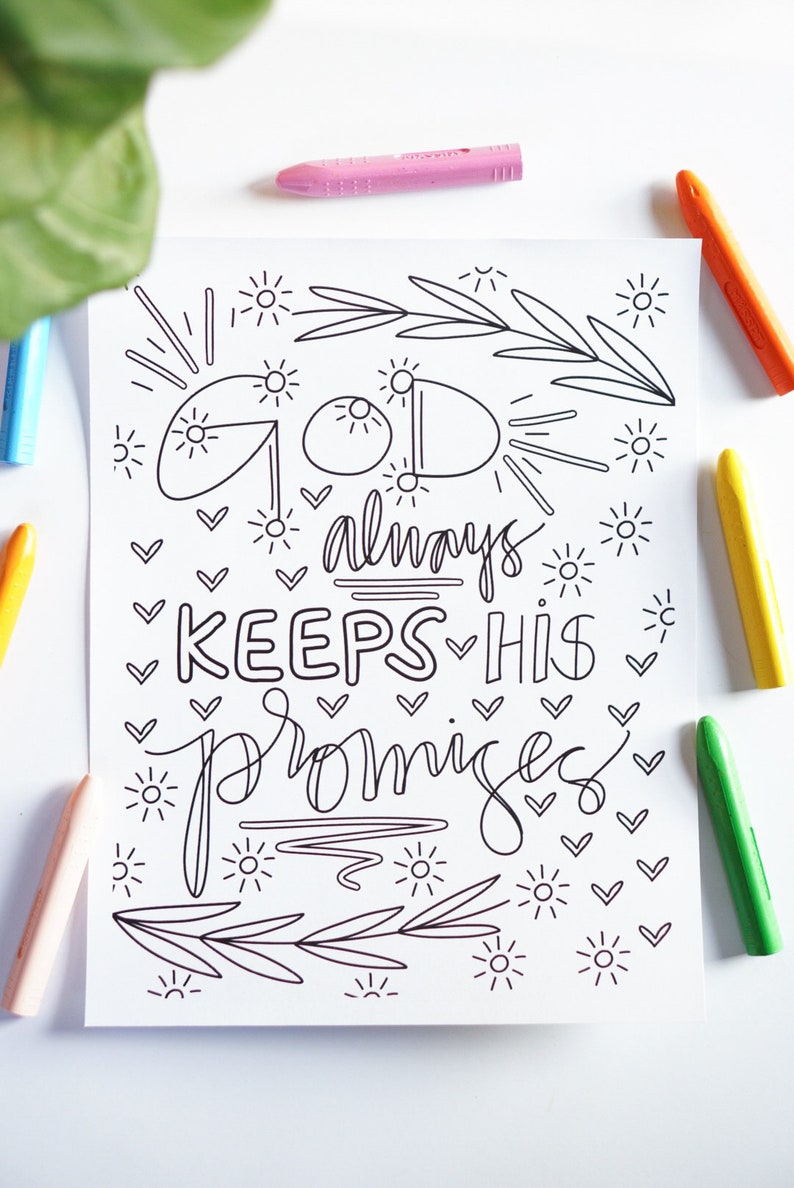 GOD
always
KEEPS HiS
promises